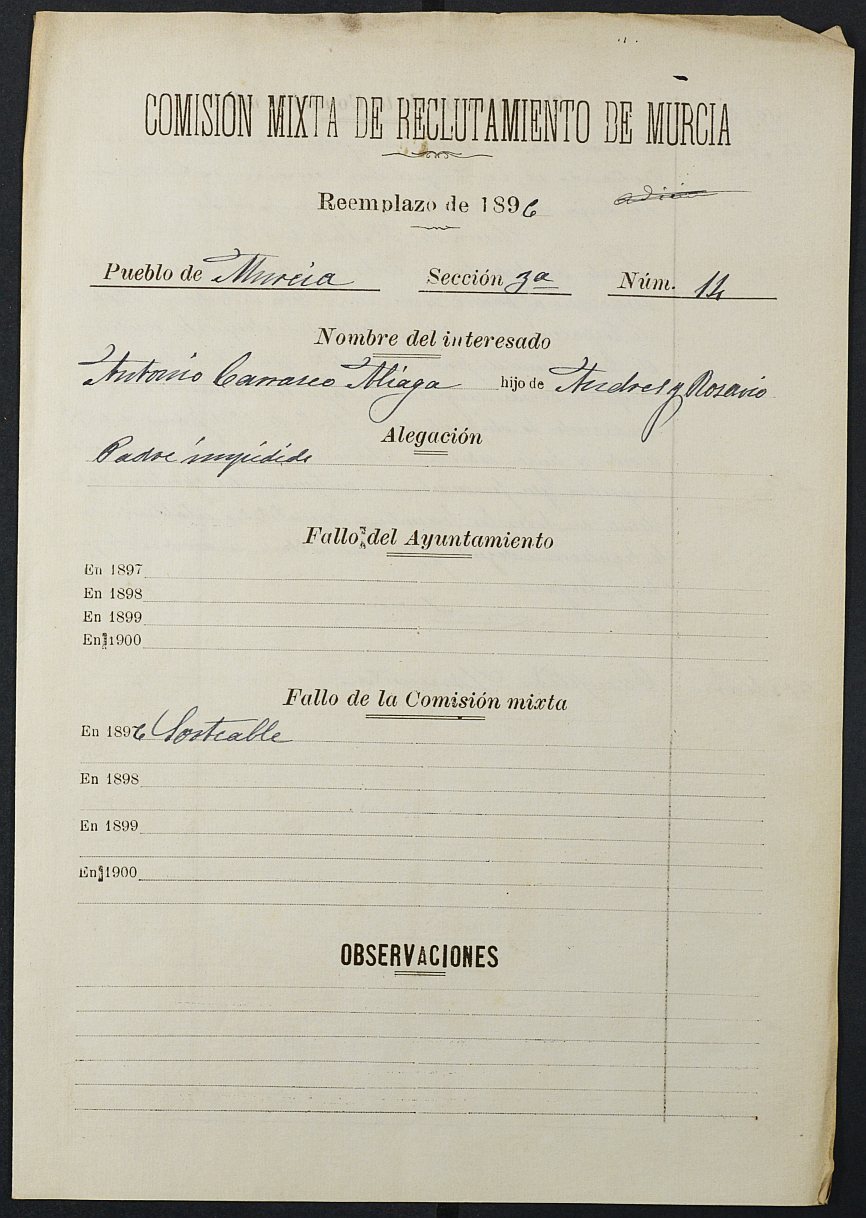 COMISIÓN MIXTA DE RECLUTAMIENTO DE MURCIA
Reemplazo de 1896
Pueblo de Murcia Sección 3ª Núm. 14
Nombre del interesado
Antonio Carrasco Aliaga hijo de Andres y Rosario
Alegación
Padre impedido
Fallo del Ayuntamiento
En 1897
En 1898
En 1899
En 1900
Fallo de la Comisión mixta
En 1896 Sorteable
En 1898
En 1899
En 1900
OBSERVACIONES